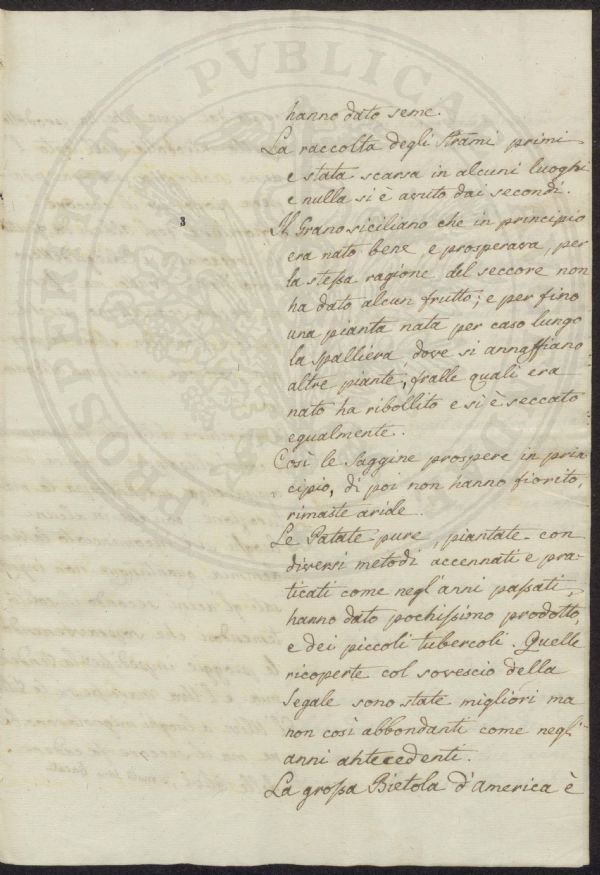 hanno dato seme.
La raccolta degli Strami primi
e stata scarsa in alcuni luoghi
e nulla si è avuto dai secondi.
3
Il Grano siciliano che in principio
era nato bene e prosperava, per
la stessa ragione del seccore non
ha dato alcun frutto; e per fino
una pianta nata per caso lungo
la spalliera dove si annaffiano
altre piante, fralle quali era
nato ha ribollito e si è seccato
egualmente.
Così le Saggine prospere in prin
cipio, di poi non hanno fiorito,
rimaste aride.
Le Patate pure, piantate con
diversi metodi accennati e pra-
ticati come negl'anni passati,
hanno dato pochissimo prodotto,
e dei piccoli tubercoli. Quelle
ricoperte col sovescio della
Segale sono state migliori ma
non così abbondanti come negl'
anni antecedenti.
La grossa Bietola d'America è
PROSPERITATI PVBLICAE